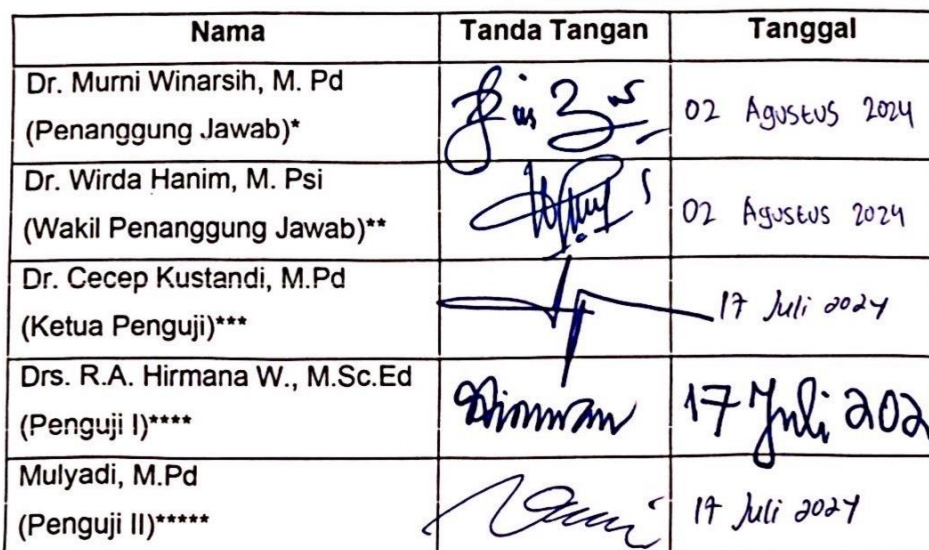 Nama Tanda Tangan Tanggal
Dr. Murni Winarsih, M. Pd
(Penanggung Jawab)*
02 Agustus 2024
Dr. Wirda Hanim, M. Psi
(Wakil Penanggung Jawab)**
02 Agustus 2024
Dr. Cecep Kustandi, M.Pd
(Ketua Penguji)***
17 Juli 2024
Drs. R.A. Hirmana W., M.Sc.Ed
(Penguji I)****
17 Juli 202
Mulyadi, M.Pd
(Penguji II)*****
17 Juli 2024